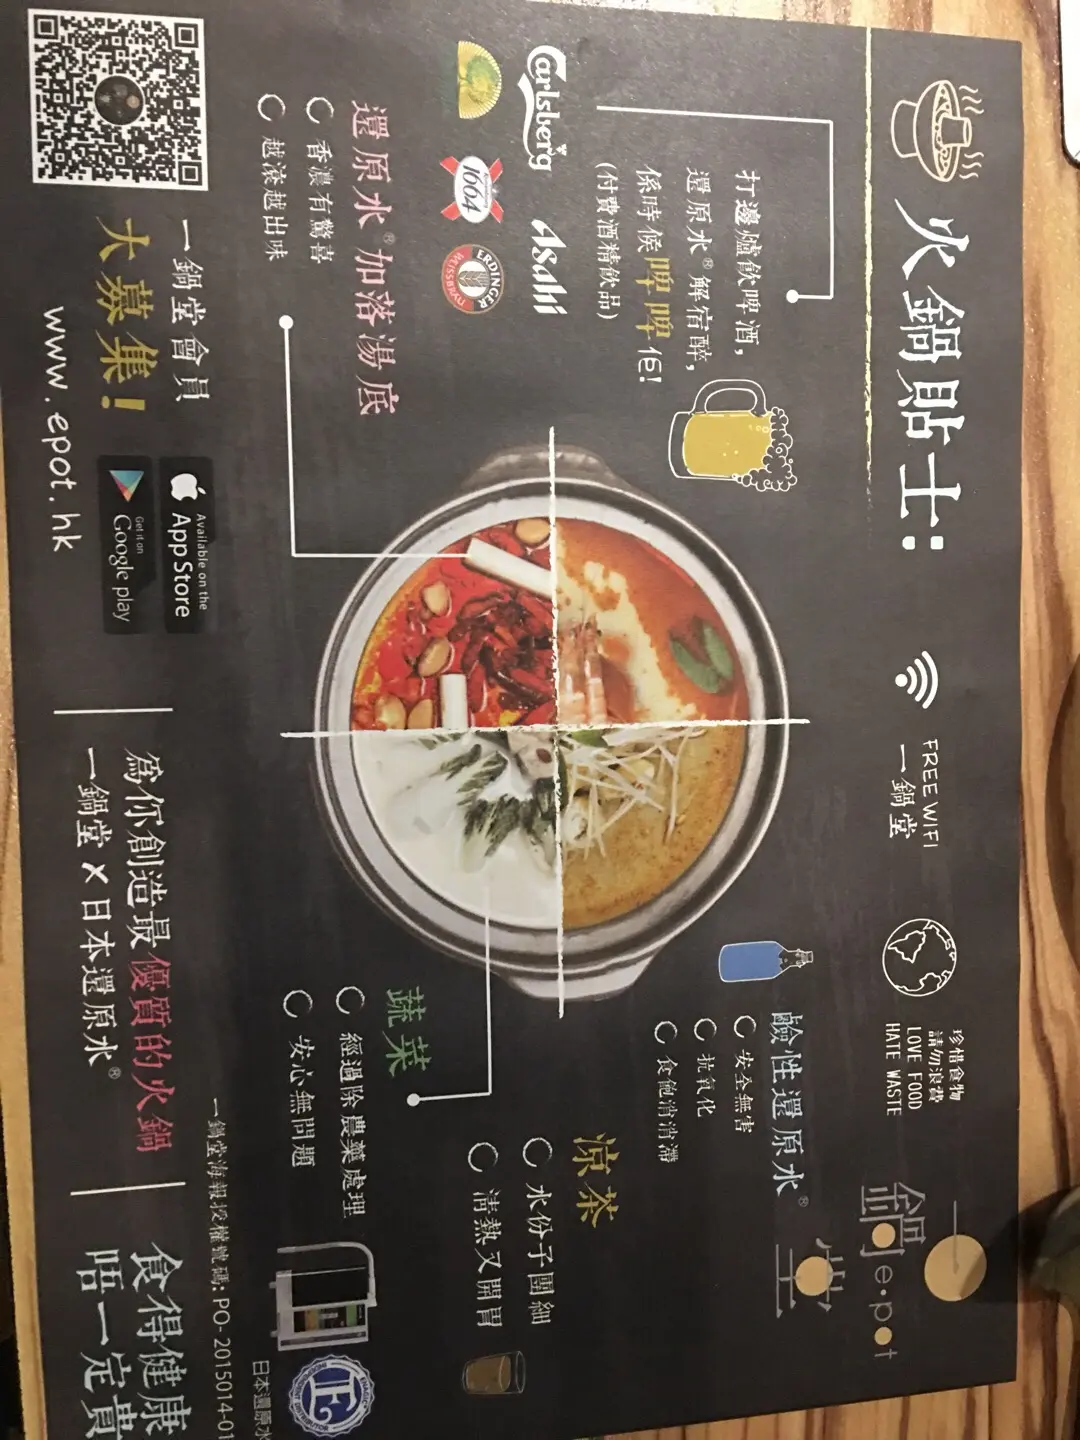 火鍋貼士:
FREE WIFI
一鍋堂
珍惜食物
請勿浪費
LOVE FOOD
HATE WASTE
一鍋堂
e•pot
打邊爐飲啤酒,
還原水®解宿醉,
係時候啤啤佢!
(付費酒精飲品)
Carlsberg
Asahi
1664
ERDINGER
WEISSBRÄU
還原水®加落湯底
香濃有驚喜
越滾越出味
鹼性還原水®
安全無害
抗氧化
食飽消滯
涼茶
水份子團細
清熱又開胃
蔬菜
經過除農藥處理
安心無問題
日本還原水
一鍋堂海報授權號碼: PO-2015014-01
一鍋堂會員
大募集!
www.epot.hk
Available on the
App Store
Get it on
Google play
為你創造最優質的火鍋
一鍋堂 x 日本還原水®
食得健康
唔一定貴